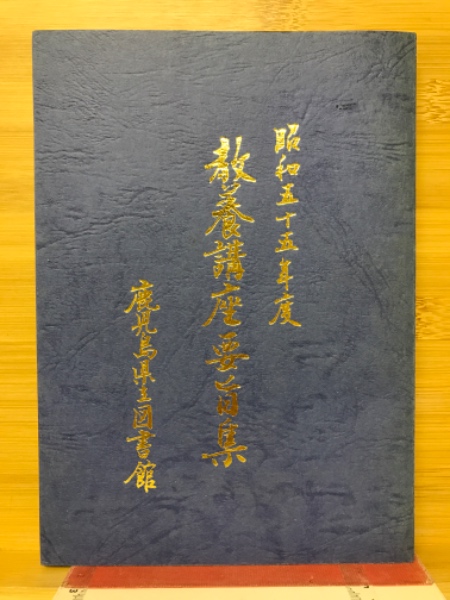 昭和五十五年度
教養講座要旨集
鹿児島県立図書館